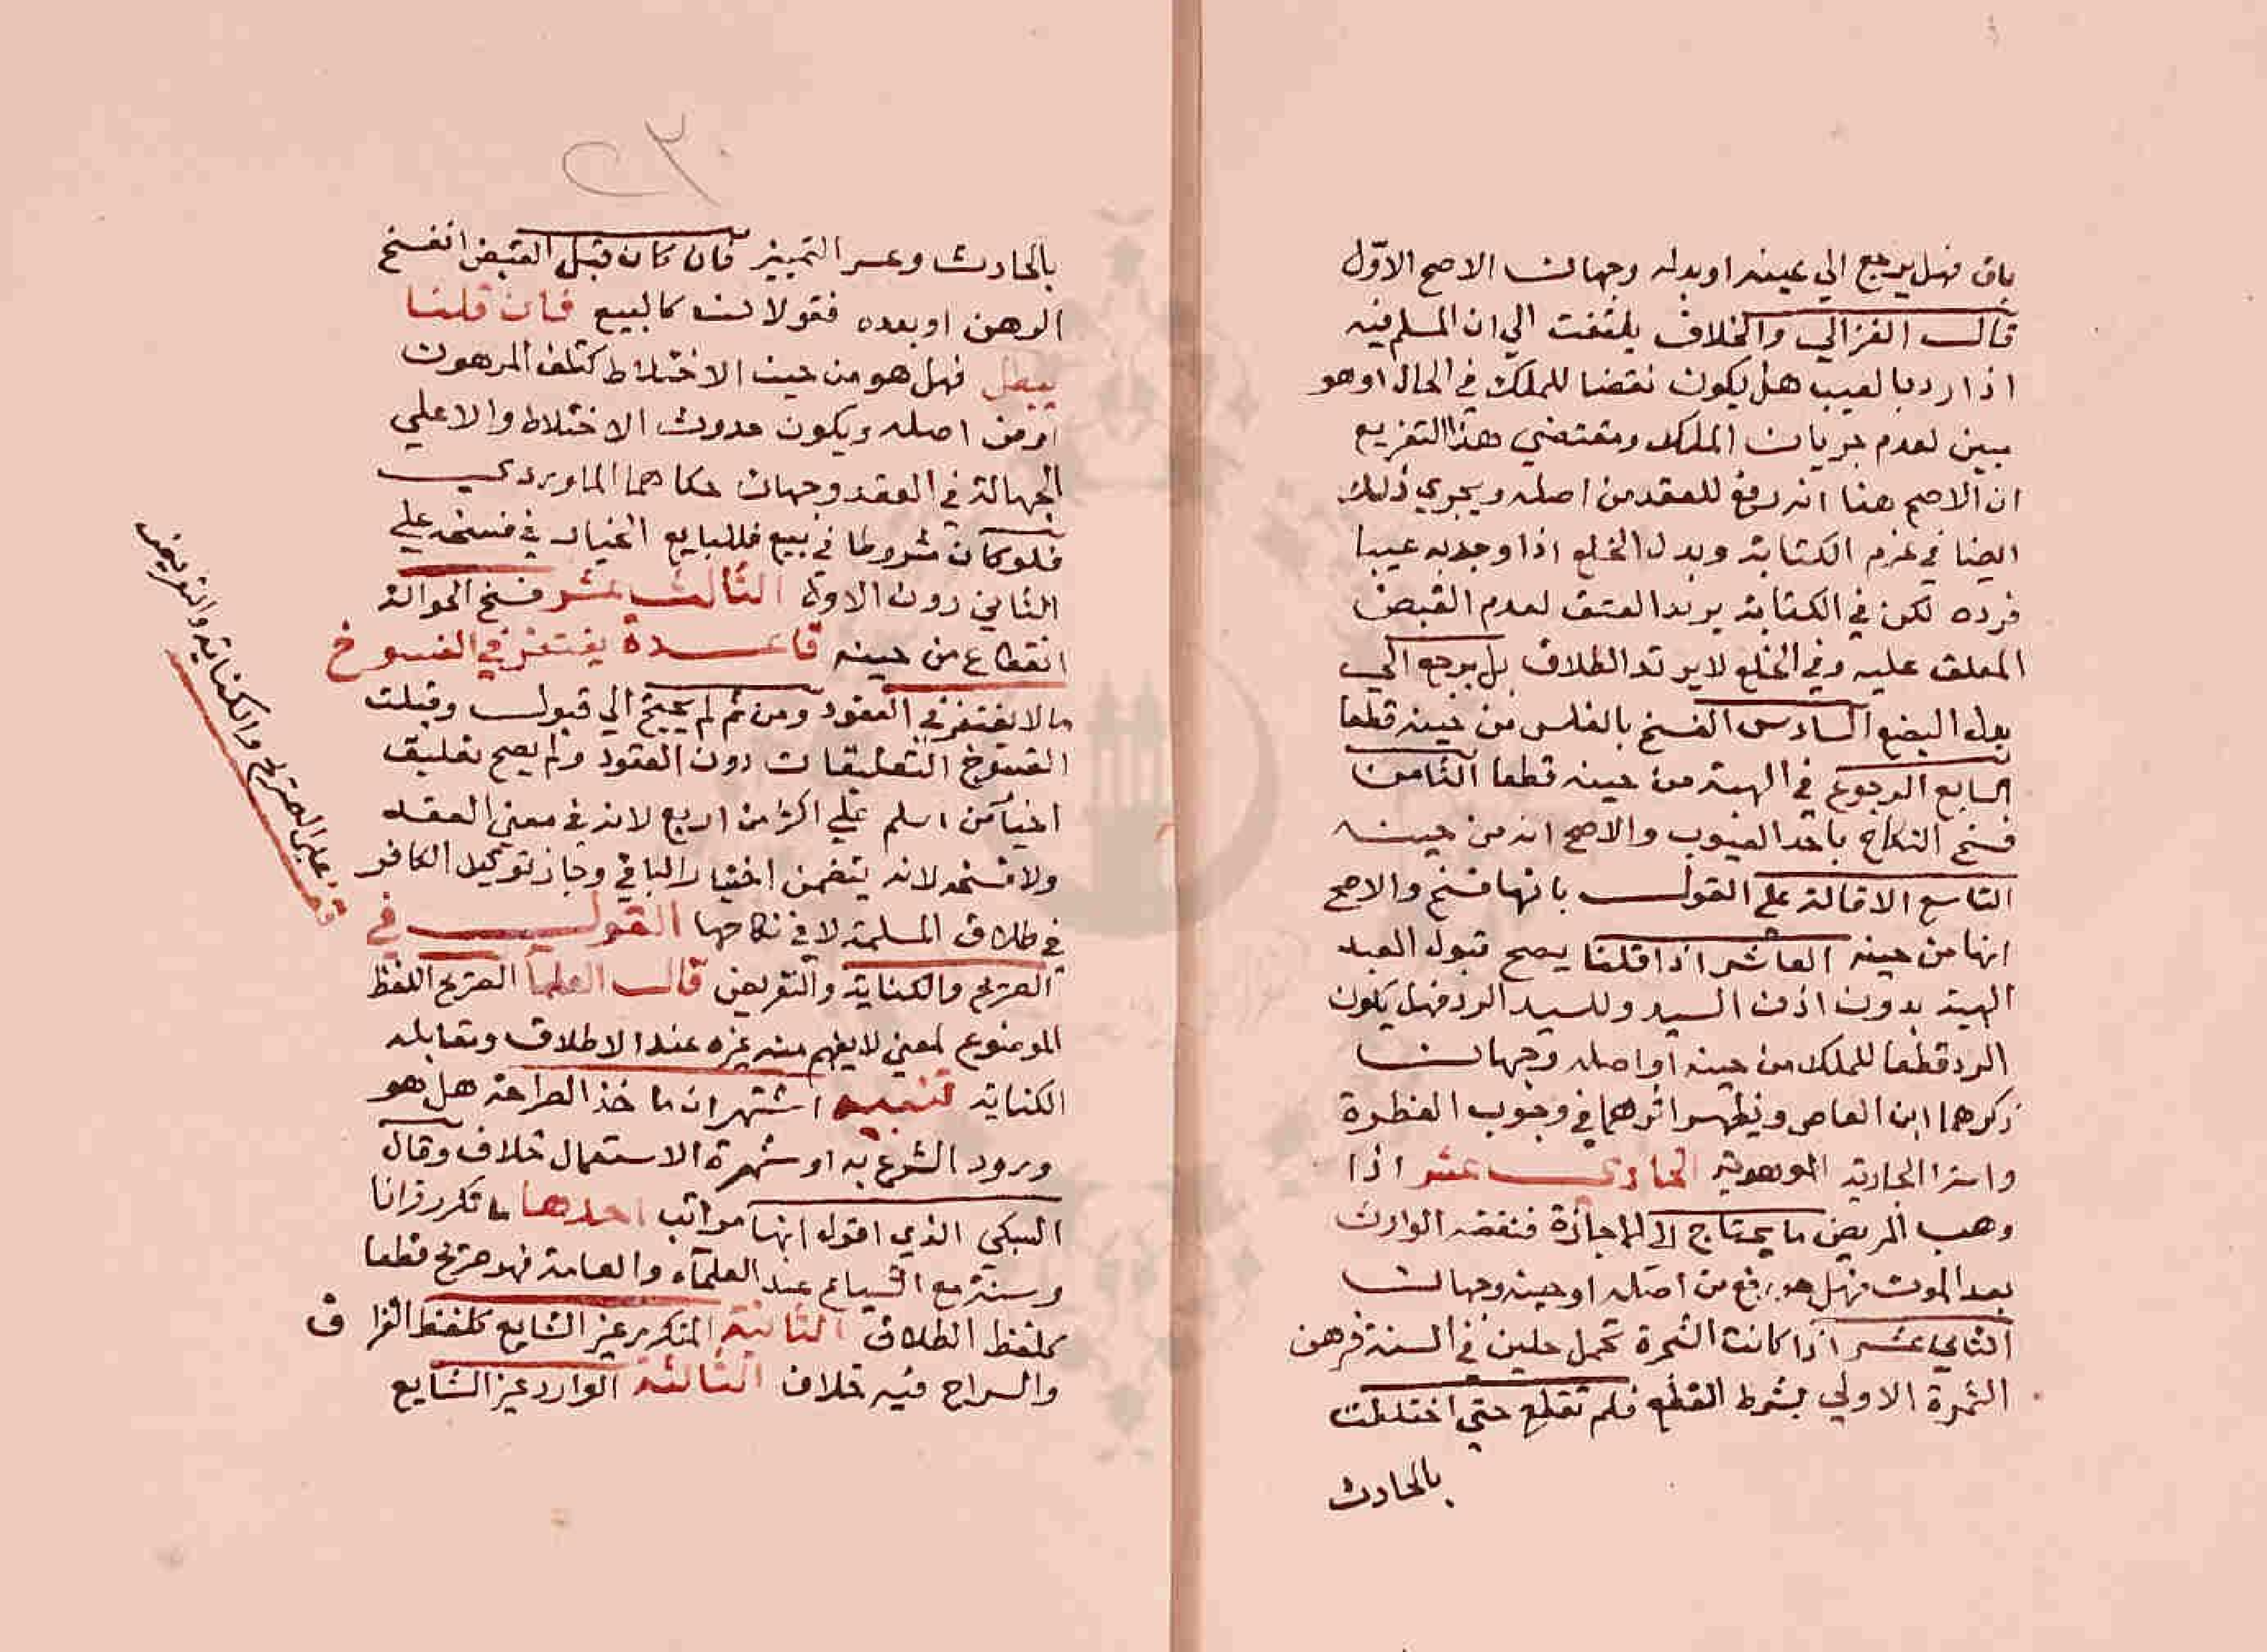 باق فهل يرجع الي عينه او بدله وجهان الاصح الاوّل
قال الغزالي والخلاف يلتفت الي ان المسلم فيه
اذا رد بالعيب هل يكون نقضا للملك في الحال او هو
مبين لعدم جريان الملك ومقتضي هذا التفريع
ان الاصح هنا انه رفع للعقد من اصله ويجري ذلك
ايضا في نجوم الكتابة وبدل الخلع اذا وجد به عيبا
فرده لكن في الكتابة يرتد العتق لعدم القبض
المعلق عليه وفي الخلع لا يرتد الطلاق بل يرجع الي
بدل البضع السادس الفسخ بالفلس من حينه قطعا
السابع الرجوع في الهبة من حينه قطعا الثامن
فسخ النكاح باحد العيوب والاصح انه من حينه
التاسع الاقالة علي القول بانها فسخ والاصح
انها من حينه العاشر اذا قلنا يصح قبول العبد
الهبة بدون اذن السيد وللسيد الرد فهل يكون
الرد قطعا للملك من حينه او اصله وجهان
ذكرهما ابن القاص ويظهر اثرهما في وجوب الفطرة
واستبرا الجارية الموهوبة الحادي عشر اذا
وهب المريض ما يحتاج الي الاجازة فنقضه الوارث
بعد الموت فهل هو رفع من اصله او حينه وجهان
الثاني عشر اذا كانت الشجرة تحمل حملين في السنة فرهن
الثمرة الاولي بشرط القطع فلم تقطع حتي اختلطت
بالحادث
بالحادث وعسر التمييز فان كان قبل القبض انفسخ
الرهن او بعده فقولان كالبيع فان قلنا
يبطل فهل هو من حين الاختلاط كتلف المرهون
او من اصله ويكون حدوث الاختلاط دالا علي
الجهالة في العقد وجهان حكاهما الماوردي
فلو كان مشروطا في بيع فللبايع الخيار في فسخه علي
الثاني دون الاول الثالث عشر فسخ الحوالة
انقطاع من حينه قاعدة يغتفر في الفسوخ
ما لا يغتفر في العقود ومن ثم لم يحتج الي قبول وقبلت
الفسوخ التعليقات دون العقود ولم يصح تعليق
اختيار من اسلم علي اكثر من اربع لانه في معني العقد
ولا فسخه لانه يتضمن اختيار الباقي وجاز توكيل الكافر
في طلاق المسلمة لا في نكاحها القول في
الصريح والكناية والتعريض قال العلما الصريح اللفظ
الموضوع لمعني لا يفهم منه غيره عند الاطلاق ومقابله
الكناية تنبيه اشتهر ان ماخذ الصراحة هل هو
ورود الشرع به او شهرة الاستعمال خلاف وقال
السبكي الذي اقوله انها مراتب احدها ما تكرر قرانا
وسنة مع الشياع عند العلماء والعامة فهو صريح قطعا
كلفظ الطلاق الثانية المتكرر غير الشايع كلفظ الفراق
والسراح فيه خلاف الثالثة الوارد غير الشايع
علي الصريح والكناية والتعريض